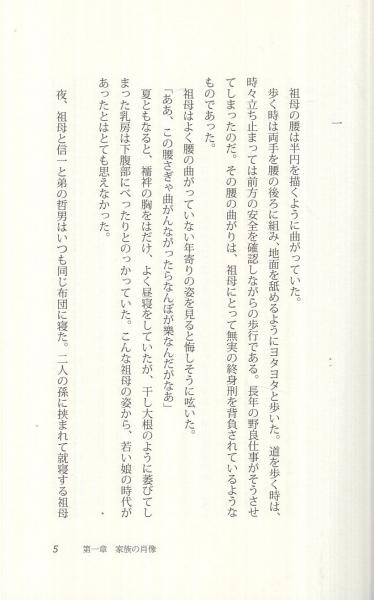 一
祖母の腰は半円を描くように曲がっていた。
歩く時は両手を腰の後ろに組み、地面を舐めるようにヨタヨタと歩いた。道を歩く時は、
時々立ち止まっては前方の安全を確認しながらの歩行である。長年の野良仕事がそうさせ
てしまったのだ。その腰の曲がりは、祖母にとって無実の終身刑を背負されているような
ものであった。
祖母はよく腰の曲がっていない年寄りの姿を見ると悔しそうに呟いた。
「ああ、この腰さぎゃ曲がんながったらなんぼが樂なんだがなあ」
夏ともなると、襦袢の胸をはだけ、よく昼寝をしていたが、干し大根のように萎びてし
まった乳房は下腹部にべったりとのっかっていた。こんな祖母の姿から、若い娘の時代が
あったとはとても思えなかった。
夜、祖母と信一と弟の哲男はいつも同じ布団に寝た。二人の孫に挟まれて就寝する祖母
5 第一章 家族の肖像